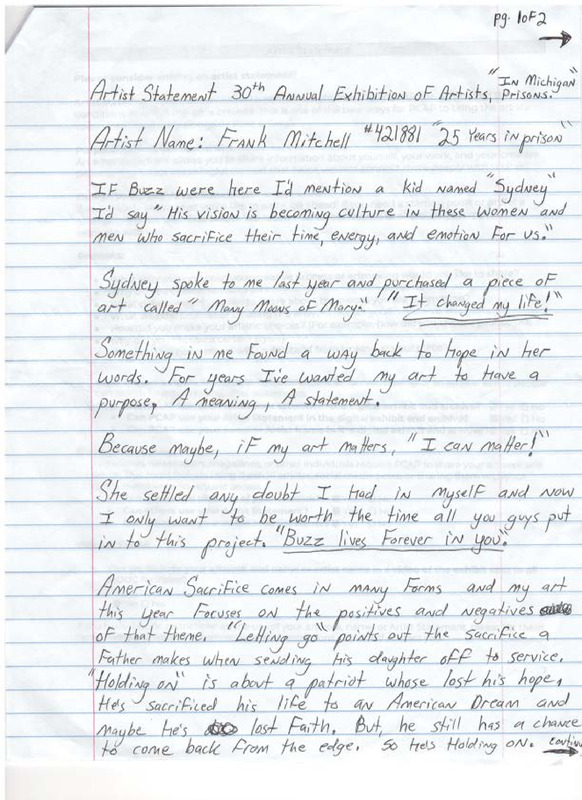 pg. 1 of 2
Artist Statement 30th Annual Exhibition of Artists, "In Michigan Prisons."
Artist Name: Frank Mitchell #421881 "25 Years in prison"
If Buzz were here I'd mention a kid named "Sydney"
I'd say "His vision is becoming culture in these women and
men who sacrifice their time, energy, and emotion for us."
Sydney spoke to me last year and purchased a piece of
art called "Many Moons of Mary." "It changed my life!"
Something in me found a way back to hope in her
words. For years I've wanted my art to have a
purpose, A meaning, A statement.
Because maybe, if my art matters, "I can matter!"
She settled any doubt I had in myself and now
I only want to be worth the time all you guys put
in to this project. "Buzz lives Forever in you."
American Sacrifice comes in many forms and my art
this year focuses on the positives and negatives
of that theme. "Letting go" points out the sacrifice a
Father makes when sending his daughter off to service.
"Holding on" is about a patriot whose lost his hope,
He's sacrificed his life to an American Dream and
maybe he's lost Faith. But, he still has a chance
to come back from the edge. So He's Holding on.